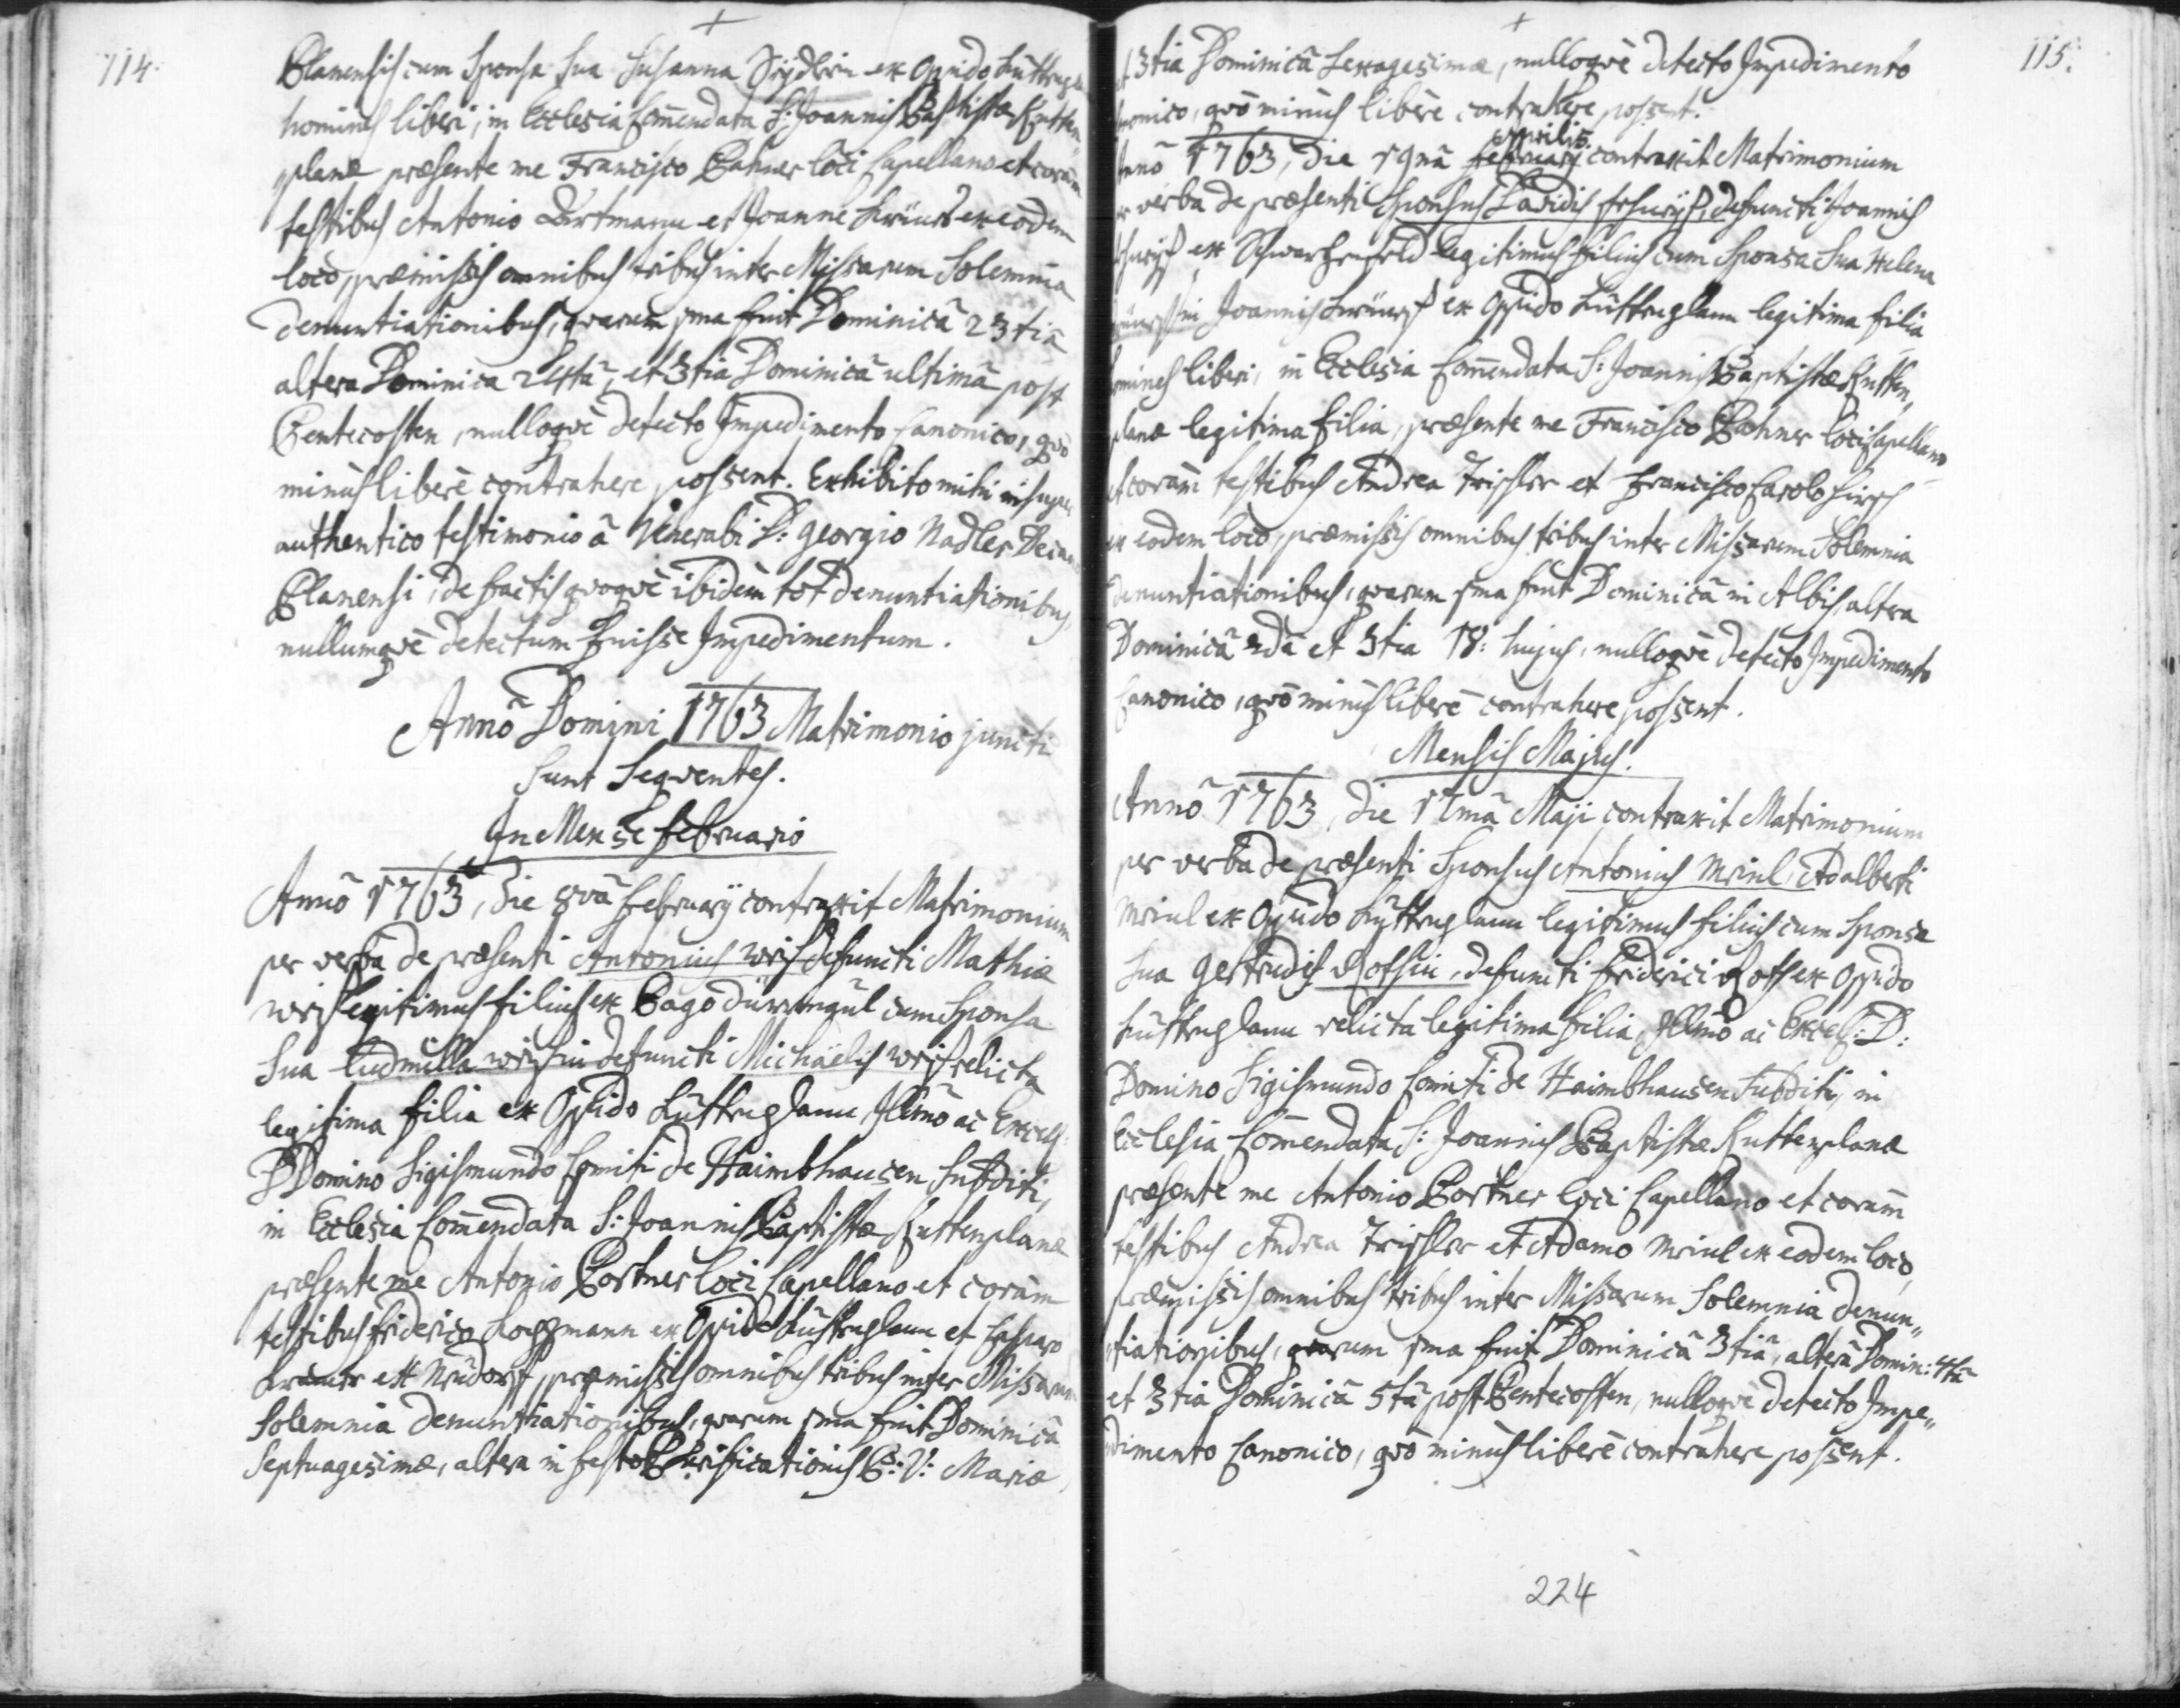 114.
Planensis cum Sponsa Sua Susanna ex Oppido
homines liberi, in Ecclesia Comendata S: Joannis Baptistæ Kutten„
planæ præsente me Francisco Pahner loci Capellano et coram
testibus Antonio et Joanne ex eodem
loco, præmissis omnibus tribus inter Missarum Solemnia
denuntiationibus, qvarum 1ma fuit Dominicâ 23tiâ
altera Dominica 24tâ, et 3tia Dominicâ ultimâ post
Pentecosten, nulloqvè detecto Impedimento Canonico, qvò
minùs liberè contrahere possent. Exhibito mihi insuper
authentico testimonio â Venerabi D: Georgio Nadler
Planensi, de factis qvoqvè ibidèm tot denuntiationibus,
nullumqvè detectum fuisse Impedimentum.
Annô Domini 1763 Matrimonio juncti
Sunt Seqventes.
In Mense Februario
Annô 1763, die 8vâ Februarÿ contraxit Matrimonium
per verba de præsenti Antonius defuncti Mathiæ
legitimus filius ex Pago cum Sponsa
Sua Ludmilla defuncti Michäelis relicta
legitima filia ex Oppido Kuttenplann, Illmô ac Excels:
D Domino Sigismundo Comiti de Haimbhausen Subditi,
in Ecclesia Comendata S: Joannis Baptistæ Kuttenplanæ
præsente me Antonio Portner loci Capellano et coràm
testibus Friderico ex Oppido Kuttenplann et Casparo
ex præmissis omnibus tribus inter Missarum
Solemnia denuntiationibus, qvarum 1ma fuit Dominicâ
Septuagesimæ, altera in festo Purificationis B: V: Mariæ,
115.
et 3tia Dominicâ Sexagesimæ, nulloqvè detecto Impedimento
Canonico, qvò minùs liberè contrahere possent.
Aprilis
Annô 1763, die 19nâ Februarÿ contraxit Matrimonium
per verba de præsenti Sponsus Davidis defuncti Joannis
ex legitimus filius cum Sponsa Sua Helena
Joannis ex Oppido Kuttenplann legitima filia
homines liberi, in Ecclesia Comendata S: Joannis Baptistæ Kutten„
planæ legitima filia, præsente me Francisco Pahner loci Capellano
et coràm testibus Andrea et Francisco Carolo
ex eodem loco, præmissis omnibus tribus inter Missarum Solemnia
denuntiationibus, qvarum 1ma fuit Dominicâ in Albis, altera
Dominicâ 2dâ et 3tia 18: hujus, nulloqvè detecto Impedimento
Canonico, qvò minùs liberè contrahere possent.
Mensis Majus.
Annô 1763, die Maji contraxit Matrimonium
per verba de præsenti Sponsus Antonius Adalberti
ex Oppido Kuttenplann legitimus filius cum Sponsa
Sua Gertrudis Rothin, defuncti Friderici Roth ex Oppido
Kuttenplann relicta legitima filia, Illmô ac Excels: D:
Domino Sigismundo Comiti de Haimbhausen Subditi, in
Ecclesia Comendata S: Joannis Baptistæ Kuttenplanæ
præsente me Antonio Portner loci Capellano et coràm
testibus Andrea et Adamo ex eodem loco,
præmissis omnibus tribus inter Missarum Solemnia denun„
tiationibus, qvarum 1ma fuit Dominicâ 3tiâ, alterâ Domin: 4tâ
et 3tia Dominicâ 5tâ post Pentecosten, nulloqvè detecto Impe„
dimento Canonico, qvò minùs liberè contrahere possent.
224